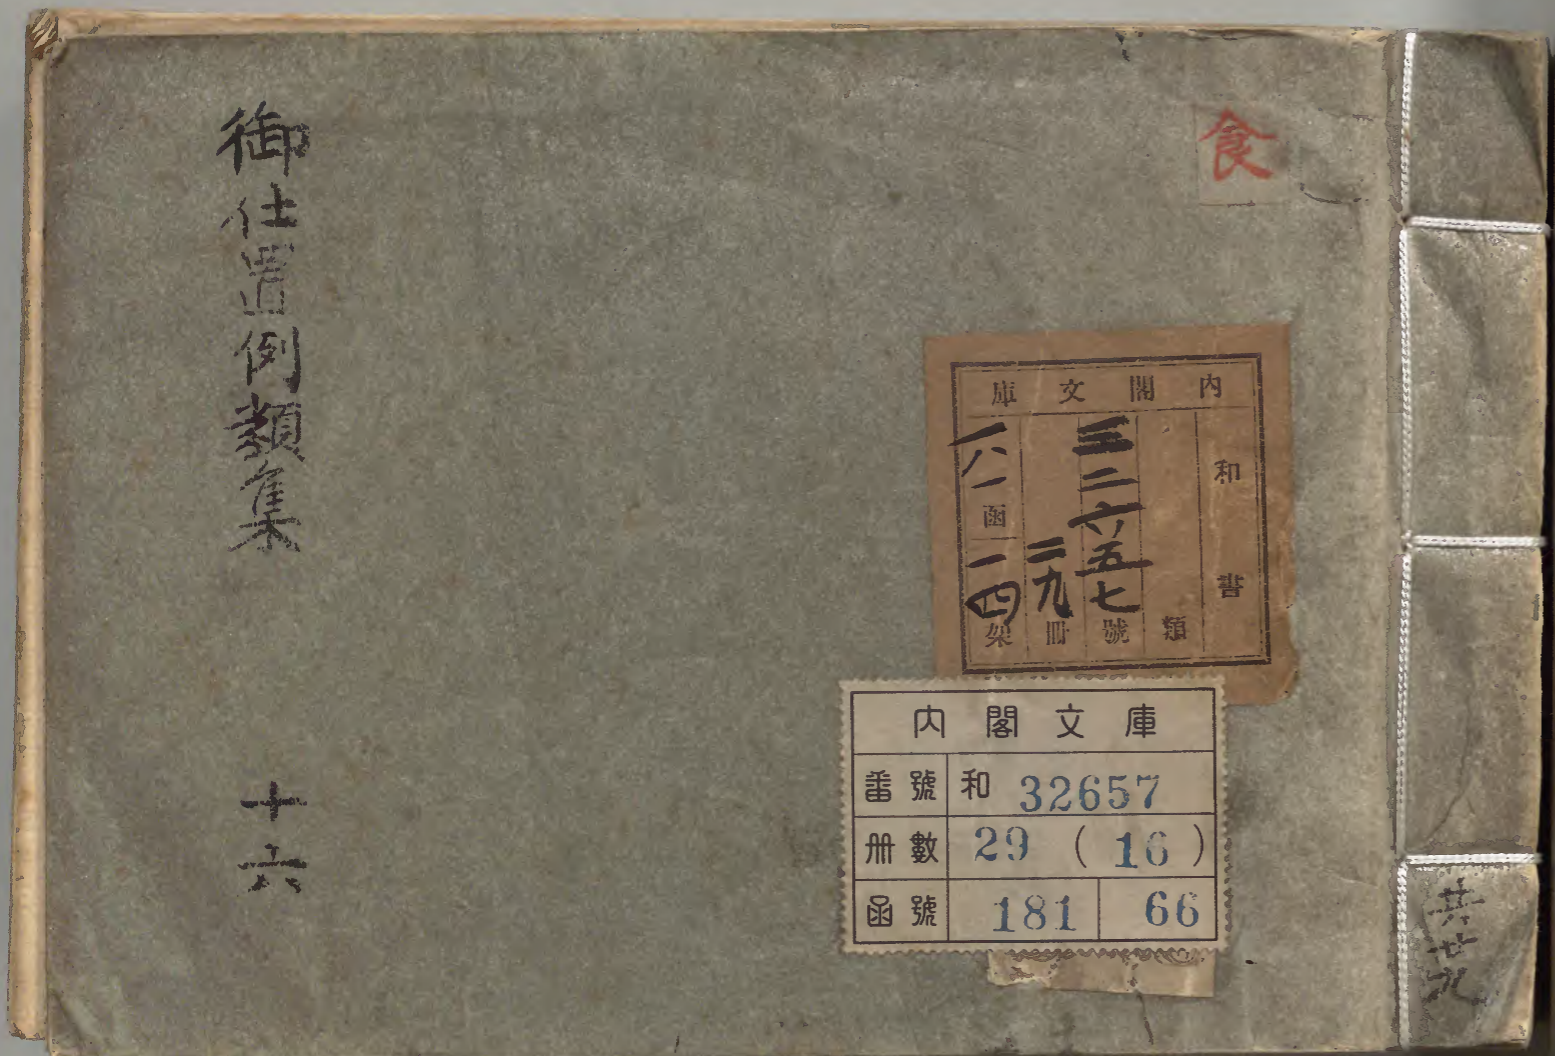 御仕置例類集
十六
食
内閣文庫
和書
類
三二六五七號
二九冊
一八一函
一四架
内閣文庫
番號 和 32657
册數 29 (16)
函號 181 66
共廿九